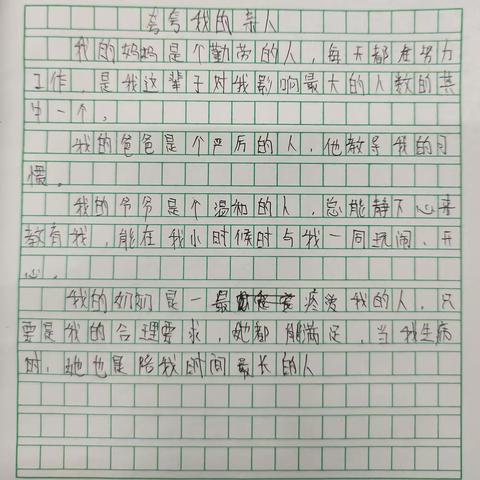 夸夸我的亲人
我的妈妈是个勤劳的人，每天都在努力
工作，是我这辈子对我影响最大的人数的其
中一个。
我的爸爸是个严厉的人，他教导我的习
惯。
我的爷爷是个温和的人，总能静下心来
教育我，能在我小时候时与我一同玩闹、开
心。
我的奶奶是一最疼爱我的人，只
要是我的合理要求，她都能满足，当我生病
时，她也是陪我时间最长的人